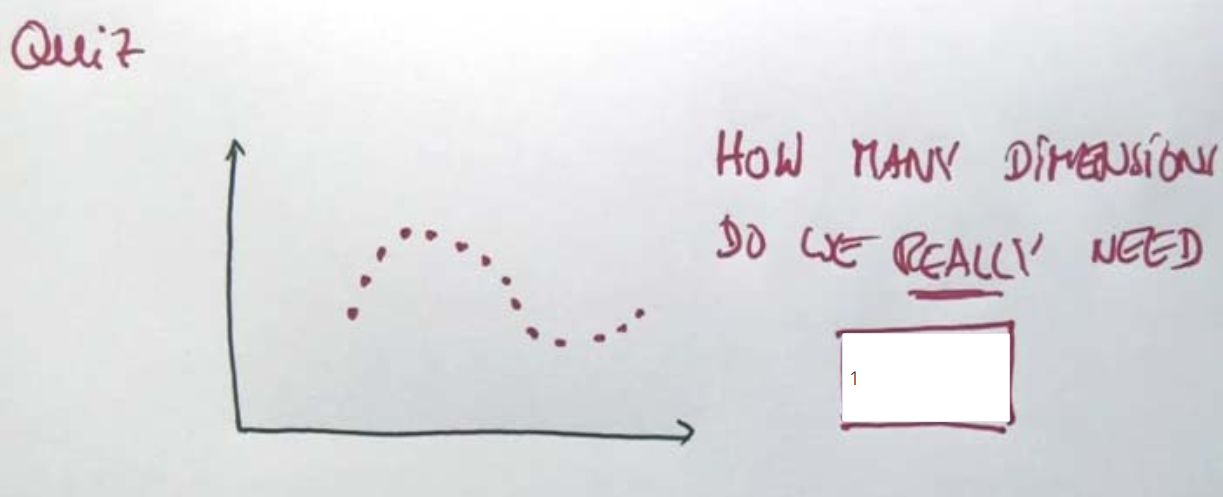 Quiz
HOW MANY DIMENSIONS
DO WE REALLY NEED
1